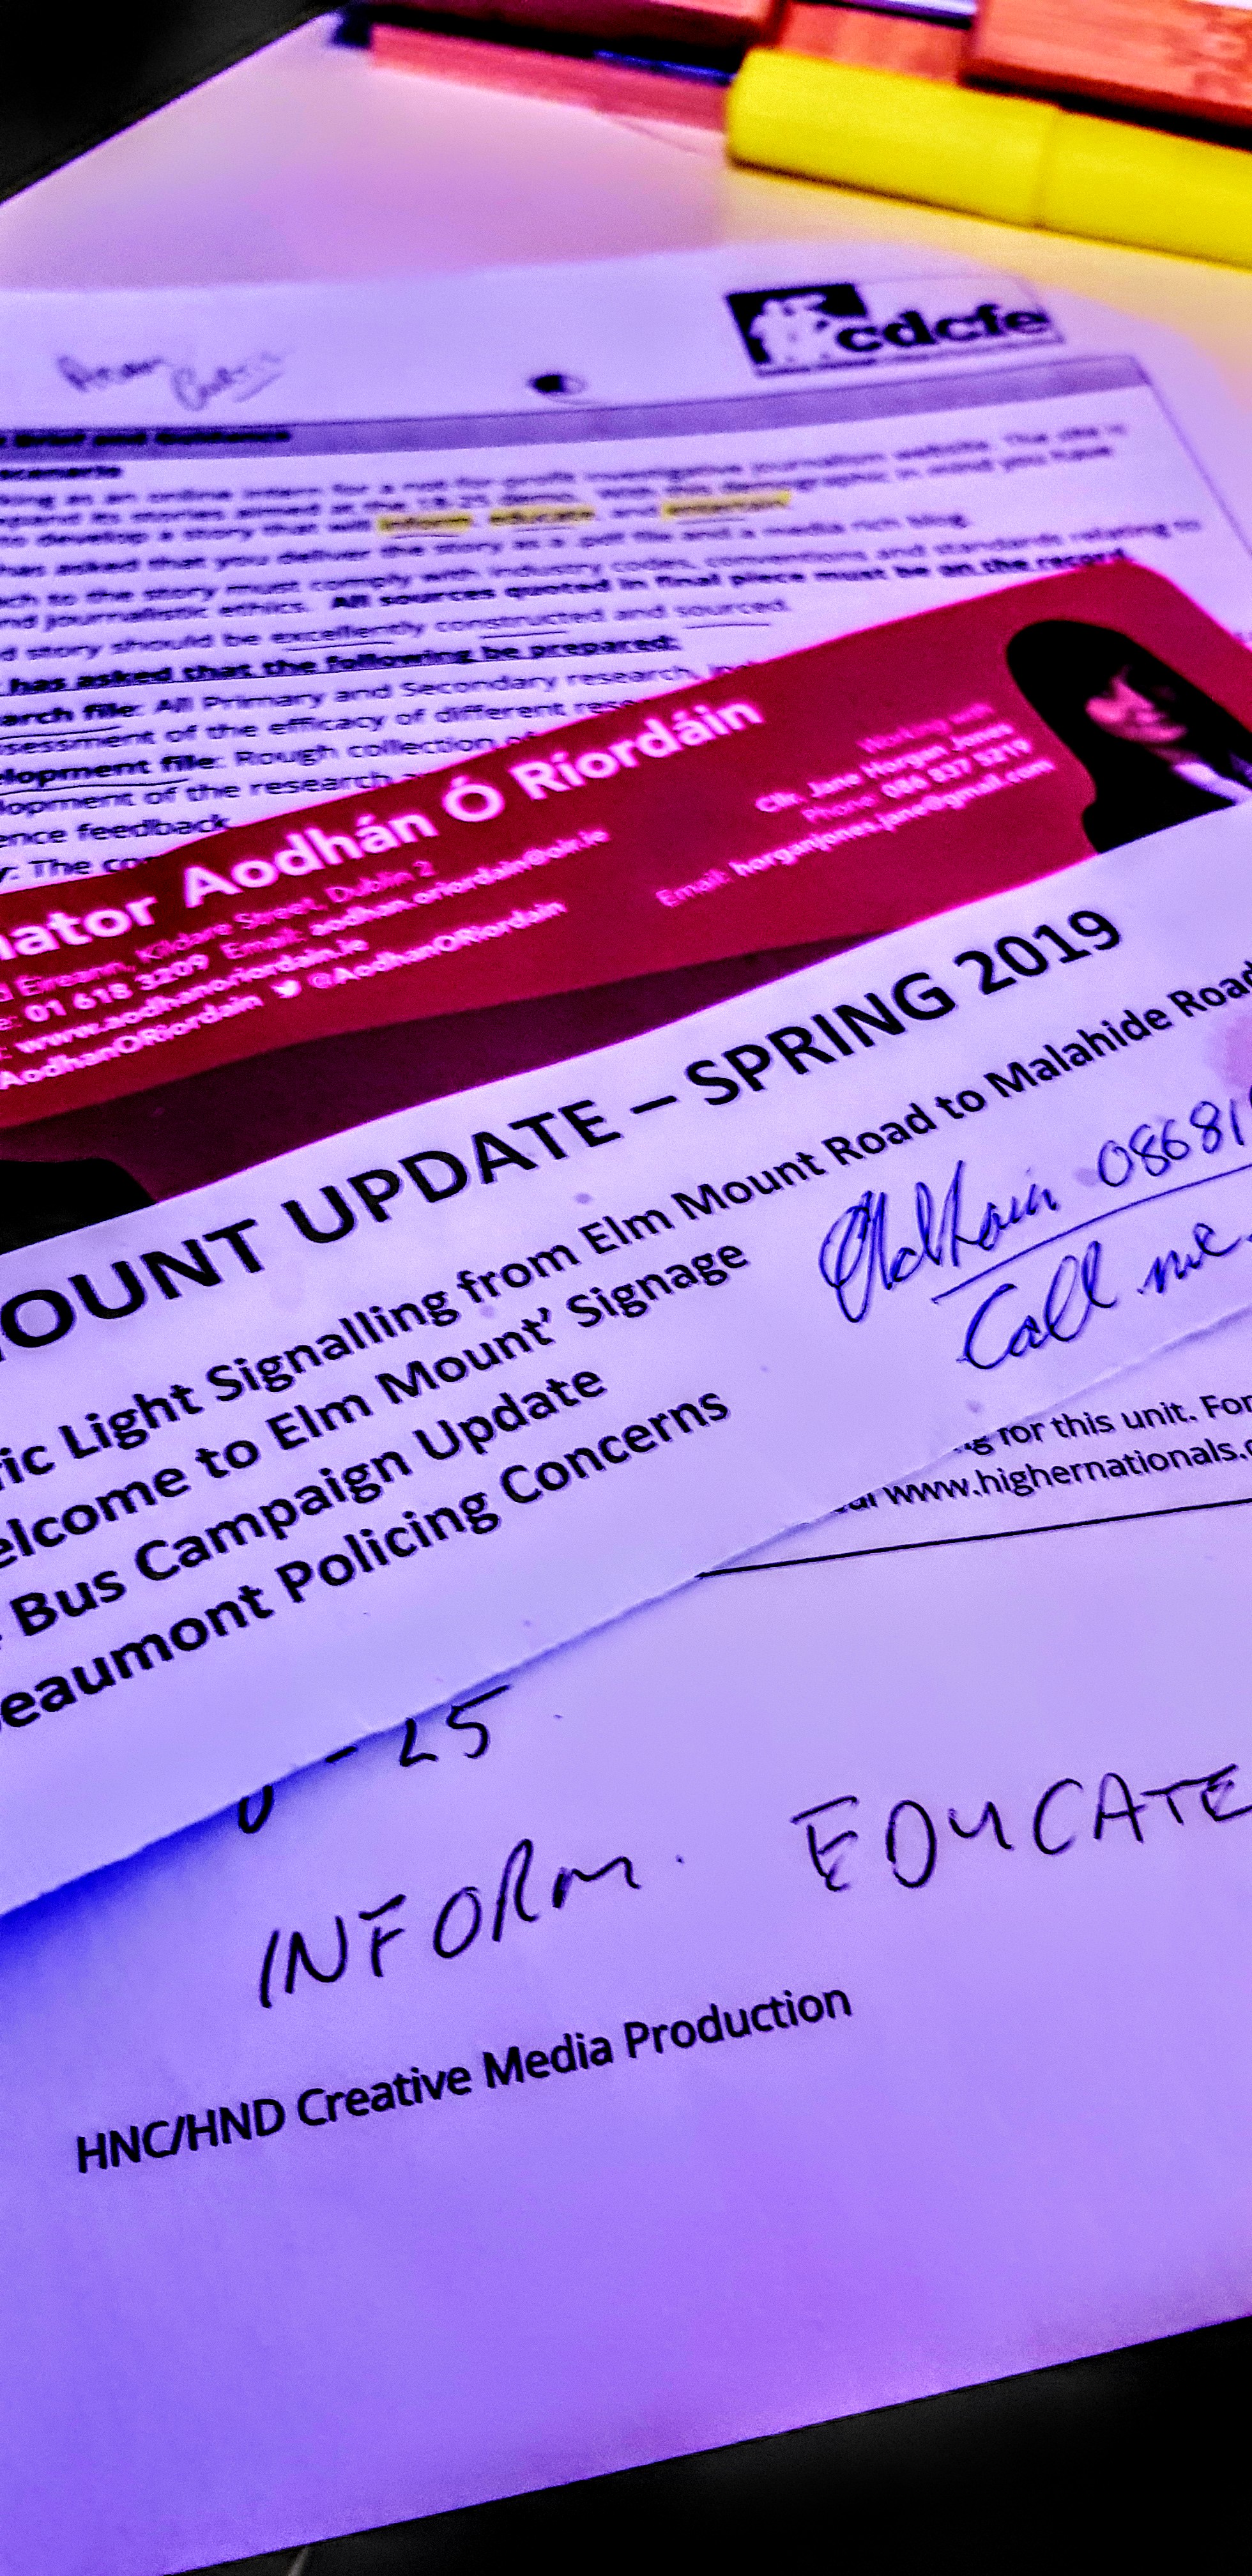 cdcfe
Brief and Guidance
scenario
king as an online intern for a not-for-profit investigative journalism website. The site is
xpand its stories aimed at the 18-25 demo. With this demographic in mind you have
to develop a story that will inform educate and entertain
has asked that you deliver the story as a .pdf file and a media rich blog.
ch to the story must comply with industry codes, conventions and standards relating to
nd journalistic ethics. All sources quoted in final piece must be on the record
d story should be excellently constructed and sourced.
has asked that the following be prepared:
arch file: All Primary and Secondary research,
sessment of the efficacy of different
elopment file: Rough collection
lopment of the research
ence feedback
: The
nator Aodhán Ó Ríordáin
d Éireann, Kildare Street, Dublin 2
e: 01 618 3209 Email: aodhan.oriordain@oir.ie
: www.aodhanoriordain.ie
AodhanORiordain @AodhanORiordain
Working with
Cllr. Jane Horgan Jones
Phone: 086 837 5219
Email: horganjones.jane@gmail.com
OUNT UPDATE – SPRING 2019
ic Light Signalling from Elm Mount Road to Malahide Road
elcome to Elm Mount' Signage
Bus Campaign Update
eaumont Policing Concerns
08681
Call me.
g for this unit. For
www.highernationals.c
- 25
INFORM. EDUCATE
HNC/HND Creative Media Production